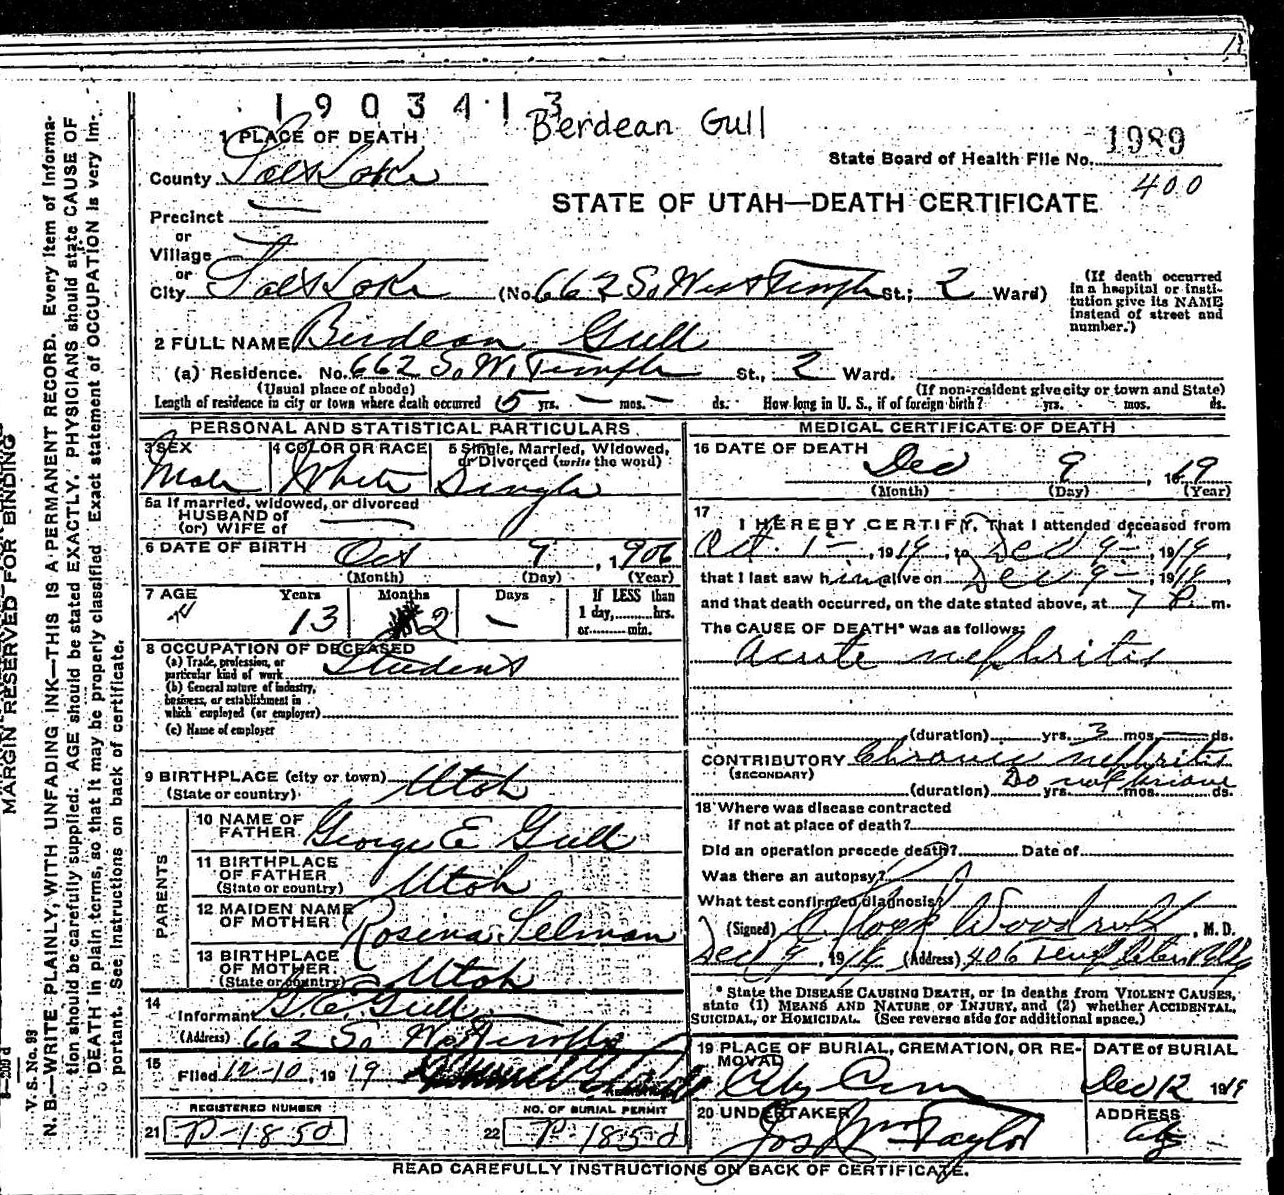 1903413
Berdean Gull
1 PLACE OF DEATH
State Board of Health File No. 1989
County Salt Lake
400
STATE OF UTAH—DEATH CERTIFICATE
Precinct —
or
Village —
or
City Salt Lake (No. 662 So West Temple St.; 2 Ward)
(If death occurred
in a hospital or insti-
tution give its NAME
instead of street and
number.)
2 FULL NAME Berdean Gull
(a) Residence. No. 662 So W. Temple St., 2 Ward.
(Usual place of abode) (If non-resident give city or town and State)
Length of residence in city or town where death occurred 5 yrs. — mos. — ds. How long in U. S., if of foreign birth? yrs. mos. ds.
PERSONAL AND STATISTICAL PARTICULARS
3 SEX
Male
4 COLOR OR RACE
White
5 Single, Married, Widowed,
or Divorced (write the word)
Single
5a If married, widowed, or divorced
HUSBAND of
(or) WIFE of —
6 DATE OF BIRTH Oct 9, 1906
(Month) (Day) (Year)
7 AGE Years Months Days
13 2 —
If LESS than
1 day, hrs.
or min.
8 OCCUPATION OF DECEASED
(a) Trade, profession, or
particular kind of work Student
(b) General nature of industry,
business, or establishment in
which employed (or employer)
(c) Name of employer
9 BIRTHPLACE (city or town)
(State or country) Utah
PARENTS
10 NAME OF
FATHER George E Gull
11 BIRTHPLACE
OF FATHER
(State or country) Utah
12 MAIDEN NAME
OF MOTHER Rosena Selman
13 BIRTHPLACE
OF MOTHER
(State or country) Utah
14
Informant G. E. Gull
(Address) 662 So W. Temple
15
Filed 12-10, 1919
REGISTERED NUMBER
21 P-1850
NO. OF BURIAL PERMIT
22 P-1850
MEDICAL CERTIFICATE OF DEATH
16 DATE OF DEATH
Dec 9, 1919
(Month) (Day) (Year)
17
I HEREBY CERTIFY, That I attended deceased from
Oct. 1—, 1919, to Dec 9—, 1919,
that I last saw him alive on Dec 9—, 1919,
and that death occurred, on the date stated above, at 7 P. m.
The CAUSE OF DEATH* was as follows:
Acute nephritis
(duration) yrs. 3 mos. — ds.
CONTRIBUTORY Chronic nephritis
(SECONDARY)
Do not know
(duration) yrs. mos. ds.
18 Where was disease contracted
if not at place of death?
Did an operation precede death? Date of
Was there an autopsy?
What test confirmed diagnosis?
(Signed) Woodruff, M. D.
Dec 9, 1919 (Address) 406 Templeton Bldg
* State the DISEASE CAUSING DEATH, or in deaths from VIOLENT CAUSES,
state (1) MEANS AND NATURE OF INJURY, and (2) whether ACCIDENTAL,
SUICIDAL, or HOMICIDAL. (See reverse side for additional space.)
19 PLACE OF BURIAL, CREMATION, OR RE-
MOVAL City Cem
DATE OF BURIAL
Dec 12 1919
20 UNDERTAKER
Jos Wm Taylor
ADDRESS
City
READ CAREFULLY INSTRUCTIONS ON BACK OF CERTIFICATE.
MARGIN RESERVED FOR BINDING
V. S. No. 99
N. B.—WRITE PLAINLY, WITH UNFADING INK—THIS IS A PERMANENT RECORD. Every item of informa-
tion should be carefully supplied. AGE should be stated EXACTLY. PHYSICIANS should state CAUSE OF
DEATH in plain terms, so that it may be properly classified. Exact statement of OCCUPATION is very im-
portant. See instructions on back of certificate.